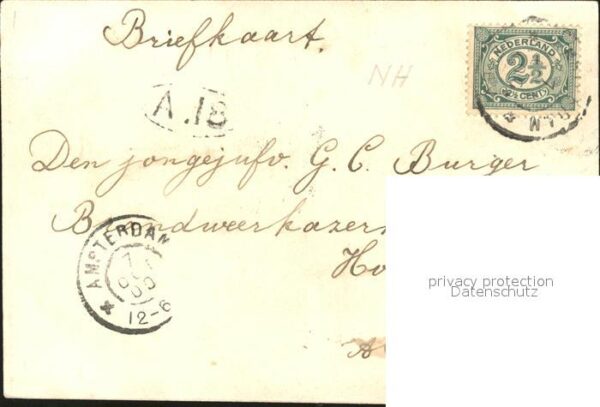 Briefkaart.
NEDERLAND
2½
2½ CENT
NH
A.18
Den jongejufv. G. C. Burger
Brandweerkazern
AMSTERDAM
Ho
12-6
privacy protection
Datenschutz
A